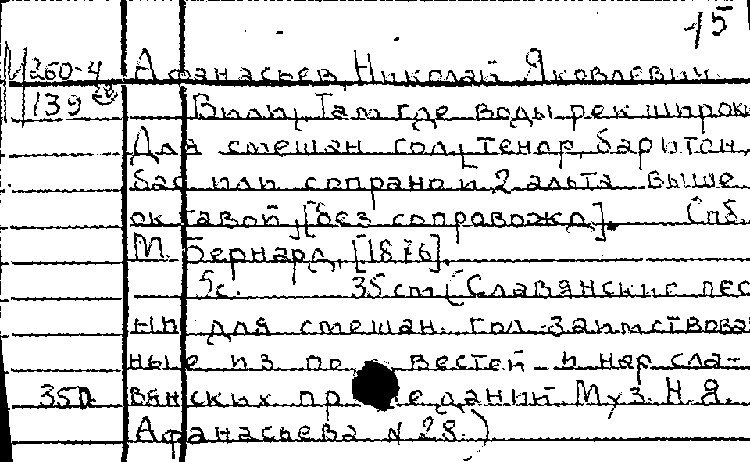 15
М 260-4 Афанасьев, Николай Яковлевич
139 Вилы, Там где воды рек широки
Для смешан гол, (тенор, баритон,
бас или сопрано и 2 альта выше
октавой) [без сопровожд.]. Спб.
М. Бернард, [1876].
5с. 35 cm (Славянские пес
ни для смешан. гол. заимствован
ные из по вестей и нар сла-
35л вянских пр еданий Муз. Н. Я.
Афанасьева N 28.)